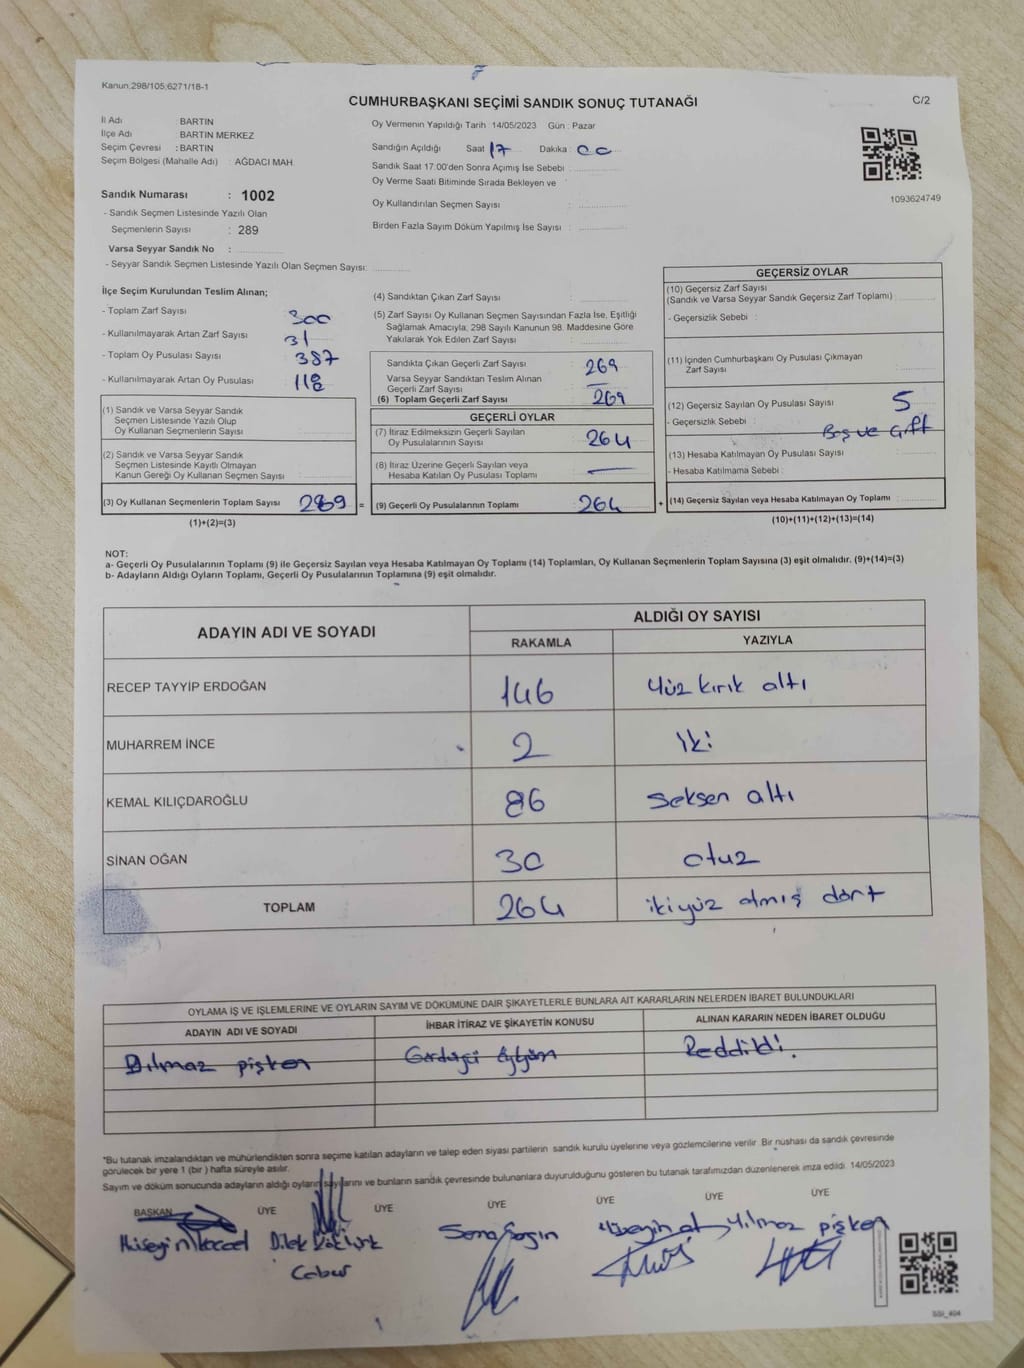 Kanun;298/105;6271/18-1
CUMHURBAŞKANI SEÇİMİ SANDIK SONUÇ TUTANAĞI
C/2
İl Adı : BARTIN
İlçe Adı : BARTIN MERKEZ
Seçim Çevresi : BARTIN
Seçim Bölgesi (Mahalle Adı) : AĞDACI MAH.
Oy Vermenin Yapıldığı Tarih : 14/05/2023 Gün : Pazar
Sandığın Açıldığı Saat 17 Dakika : 00
Sandık Saat 17.00'den Sonra Açımış İse Sebebi :
Oy Verme Saati Bitiminde Sırada Bekleyen ve
Oy Kullandırılan Seçmen Sayısı :
Birden Fazla Sayım Döküm Yapılmış İse Sayısı :
1093624749
Sandık Numarası : 1002
- Sandık Seçmen Listesinde Yazılı Olan
Seçmenlerin Sayısı : 289
Varsa Seyyar Sandık No :
- Seyyar Sandık Seçmen Listesinde Yazılı Olan Seçmen Sayısı:
İlçe Seçim Kurulundan Teslim Alınan;
- Toplam Zarf Sayısı : 300
- Kullanılmayarak Artan Zarf Sayısı : 31
- Toplam Oy Pusulası Sayısı : 387
- Kullanılmayarak Artan Oy Pusulası : 118
(1) Sandık ve Varsa Seyyar Sandık
Seçmen Listesinde Yazılı Olup
Oy Kullanan Seçmenlerin Sayısı :
(2) Sandık ve Varsa Seyyar Sandık
Seçmen Listesinde Kayıtlı Olmayan
Kanun Gereği Oy Kullanan Seçmen Sayısı :
(3) Oy Kullanan Seçmenlerin Toplam Sayısı 269 =
(1)+(2)=(3)
(4) Sandıktan Çıkan Zarf Sayısı :
(5) Zarf Sayısı Oy Kullanan Seçmen Sayısından Fazla İse, Eşitliği
Sağlamak Amacıyla, 298 Sayılı Kanunun 98. Maddesine Göre
Yakılarak Yok Edilen Zarf Sayısı :
Sandıkta Çıkan Geçerli Zarf Sayısı : 269
Varsa Seyyar Sandıktan Teslim Alınan
Geçerli Zarf Sayısı : —
(6) Toplam Geçerli Zarf Sayısı : 269
GEÇERLİ OYLAR
(7) İtiraz Edilmeksizin Geçerli Sayılan
Oy Pusulalarının Sayısı : 264
(8) İtiraz Üzerine Geçerli Sayılan veya
Hesaba Katılan Oy Pusulası Toplamı : —
(9) Geçerli Oy Pusulalarının Toplamı : 264 +
GEÇERSİZ OYLAR
(10) Geçersiz Zarf Sayısı
(Sandık ve Varsa Seyyar Sandık Geçersiz Zarf Toplamı)
- Geçersizlik Sebebi :
(11) İçinden Cumhurbaşkanı Oy Pusulası Çıkmayan
Zarf Sayısı :
(12) Geçersiz Sayılan Oy Pusulası Sayısı : 5
- Geçersizlik Sebebi : Boş ve Çift
(13) Hesaba Katılmayan Oy Pusulası Sayısı :
- Hesaba Katılmama Sebebi :
(14) Geçersiz Sayılan veya Hesaba Katılmayan Oy Toplamı :
(10)+(11)+(12)+(13)=(14)
NOT:
a- Geçerli Oy Pusulalarının Toplamı (9) ile Geçersiz Sayılan veya Hesaba Katılmayan Oy Toplamı (14) Toplamları, Oy Kullanan Seçmenlerin Toplam Sayısına (3) eşit olmalıdır. (9)+(14)=(3)
b- Adayların Aldığı Oyların Toplamı, Geçerli Oy Pusulalarının Toplamına (9) eşit olmalıdır.
ADAYIN ADI VE SOYADI
ALDIĞI OY SAYISI
RAKAMLA YAZIYLA
RECEP TAYYİP ERDOĞAN 146 Yüz kırık altı
MUHARREM İNCE 2 iki
KEMAL KILIÇDAROĞLU 86 Seksen altı
SİNAN OĞAN 30 otuz
TOPLAM 264 ikiyüz atmış dört
OYLAMA İŞ VE İŞLEMLERİNE VE OYLARIN SAYIM VE DÖKÜMÜNE DAİR ŞİKAYETLERLE BUNLARA AİT KARARLARIN NELERDEN İBARET BULUNDUKLARI
ADAYIN ADI VE SOYADI İHBAR İTİRAZ VE ŞİKAYETİN KONUSU ALINAN KARARIN NEDEN İBARET OLDUĞU
pişken Reddildi.
*Bu tutanak imzalandıktan ve mühürlendikten sonra seçime katılan adayların ve talep eden siyası partilerin sandık kurulu üyelerine veya gözlemcilerine verilir. Bir nüshası da sandık çevresinde
görülecek bir yere 1 (bir ) hafta süreyle asılır.
Sayım ve döküm sonucunda adayların aldığı oyların sayılarını ve bunların sandık çevresinde bulunanlara duyurulduğunu gösteren bu tutanak tarafımızdan düzenlenerek imza edildi. 14/05/2023
BAŞKAN ÜYE ÜYE ÜYE ÜYE ÜYE ÜYE
Hüseyin Dilek Köktürk Sona Hüseyin Yılmaz pişken